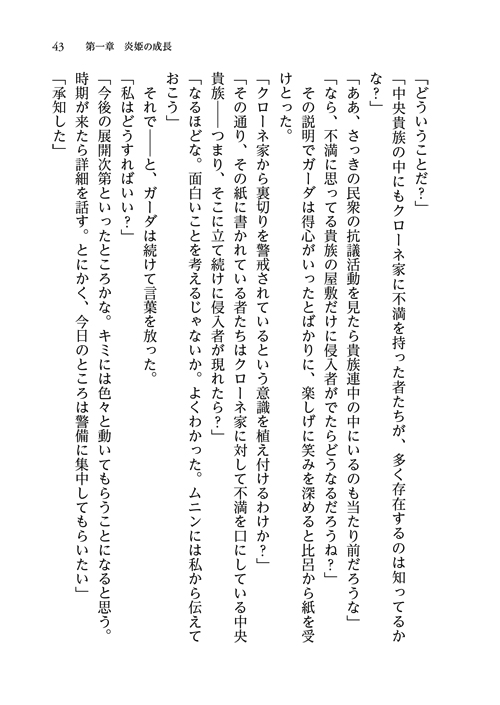 43　第一章　炎姫の成長
「どういうことだ？」
「中央貴族の中にもクローネ家に不満を持った者たちが、多く存在するのは知ってるか
な？」
「ああ、さっきの民衆の抗議活動を見たら貴族連中の中にいるのも当たり前だろうな」
「なら、不満に思ってる貴族の屋敷だけに侵入者がでたらどうなるだろうね？」
　その説明でガーダは得心がいったとばかりに、楽しげに笑みを深めると比呂から紙を受
けとった。
「クローネ家から裏切りを警戒されているという意識を植え付けるわけか？」
「その通り、その紙に書かれている者たちはクローネ家に対して不満を口にしている中央
貴族――つまり、そこに立て続けに侵入者が現れたら？」
「なるほどな。面白いことを考えるじゃないか。よくわかった。ムニンには私から伝えて
おこう」
　それで――と、ガーダは続けて言葉を放った。
「私はどうすればいい？」
「今後の展開次第といったところかな。キミには色々と動いてもらうことになると思う。
時期が来たら詳細を話す。とにかく、今日のところは警備に集中してもらいたい」
「承知した」